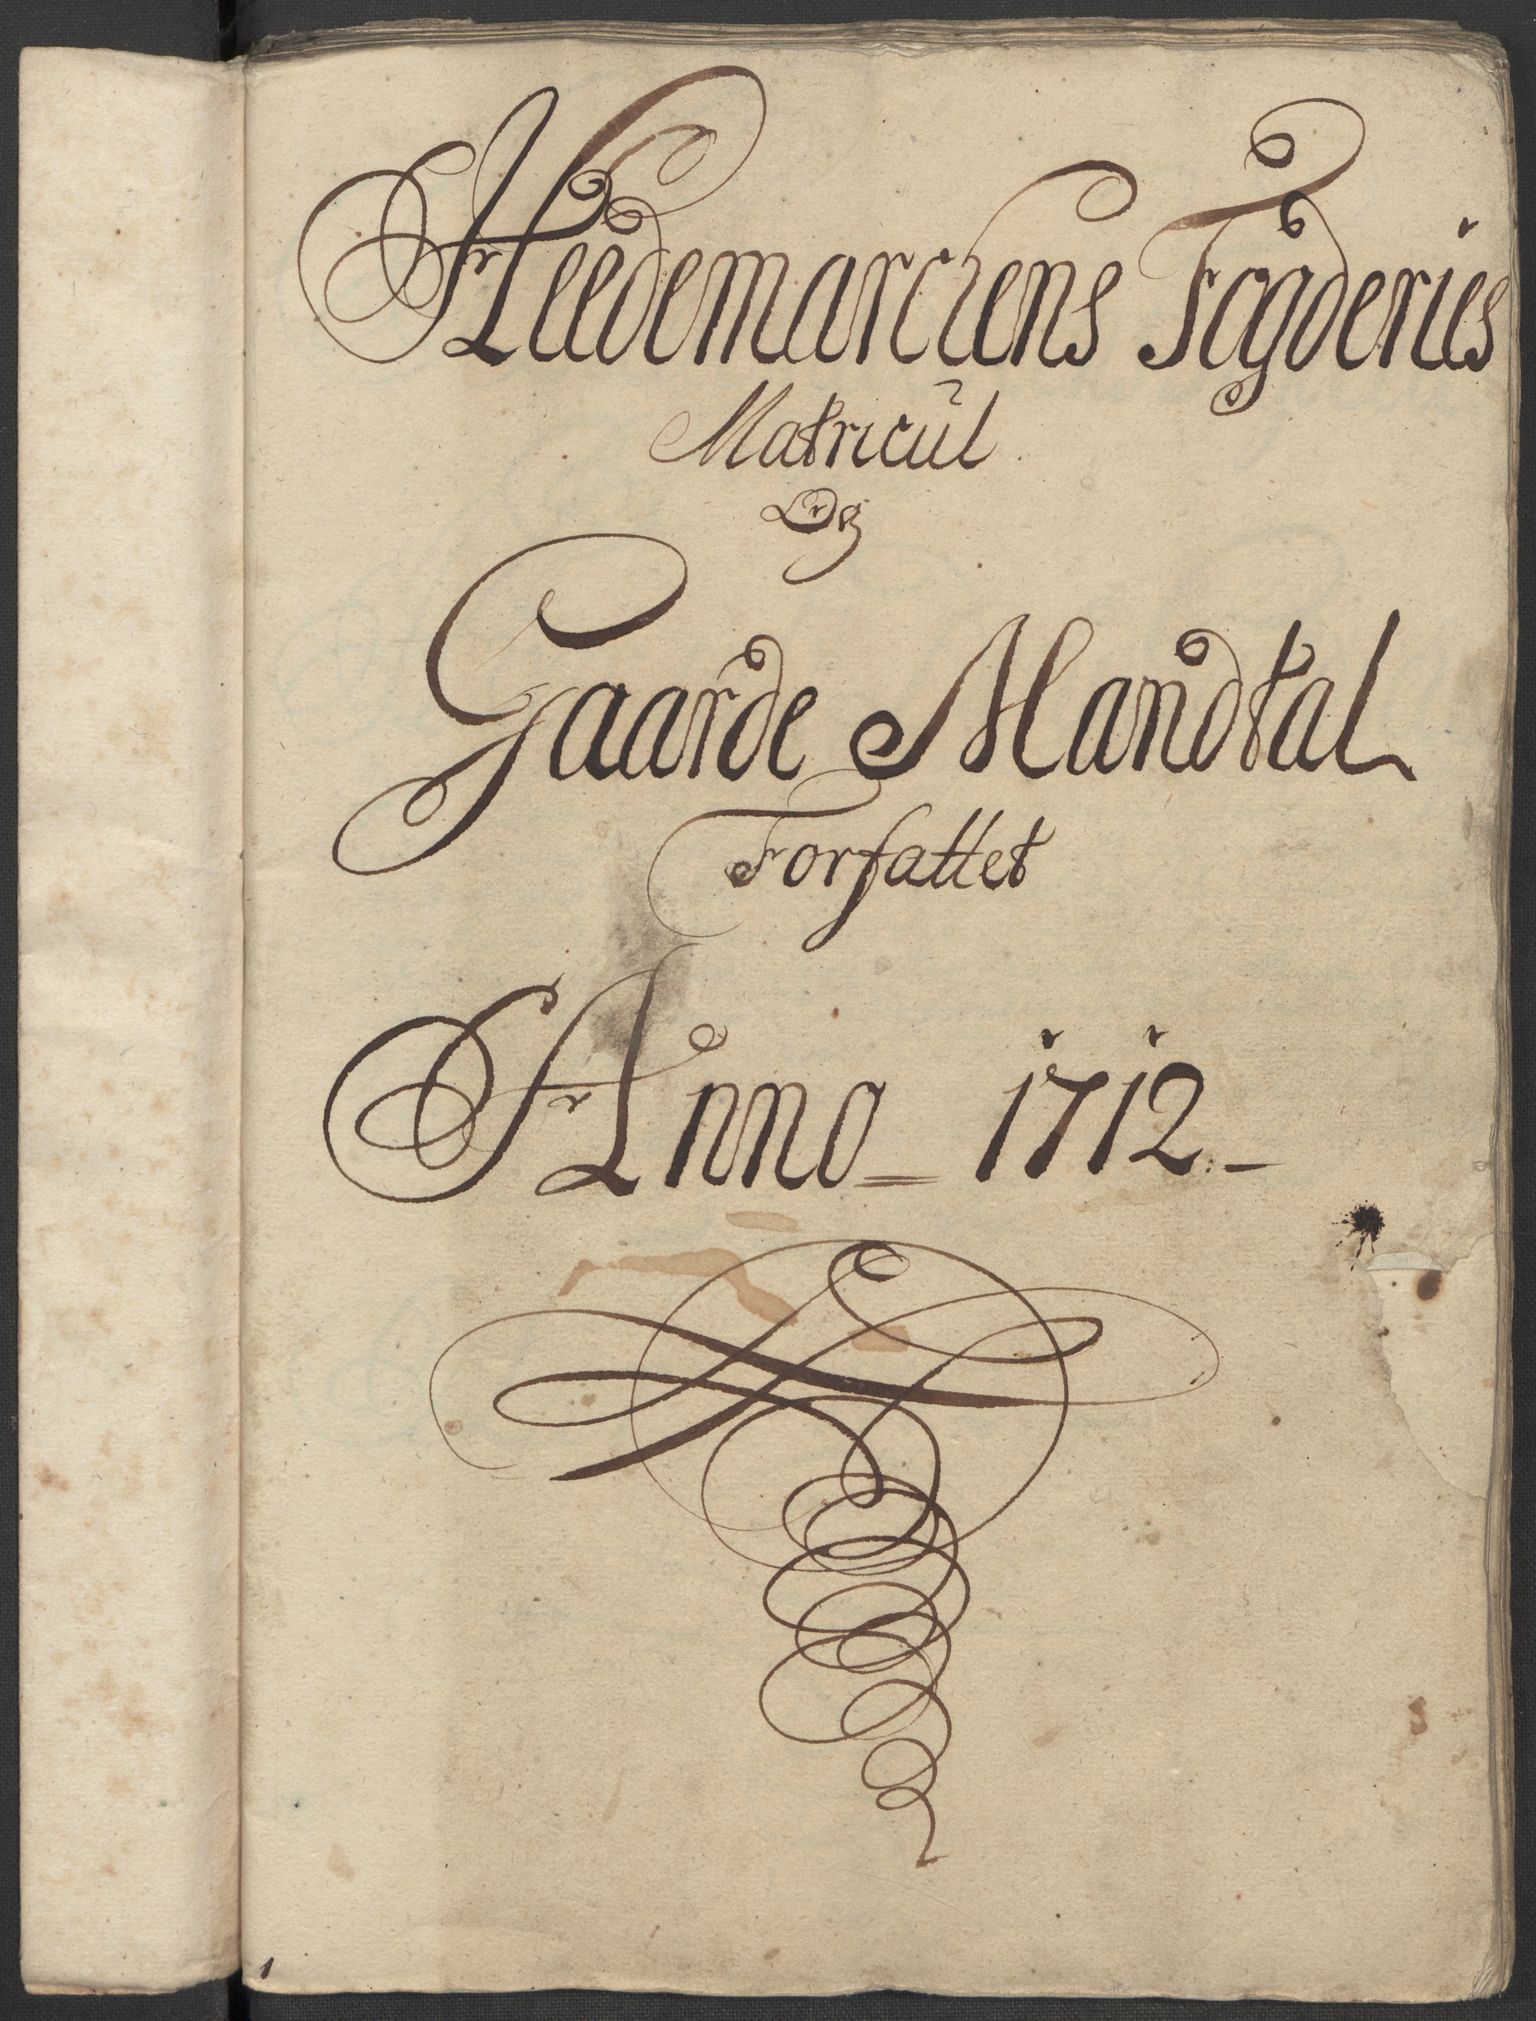 Heedemarckens Fogderies
Matricul
Og
Gaarde Mandtal
Forfattet
Anno 1712.
1